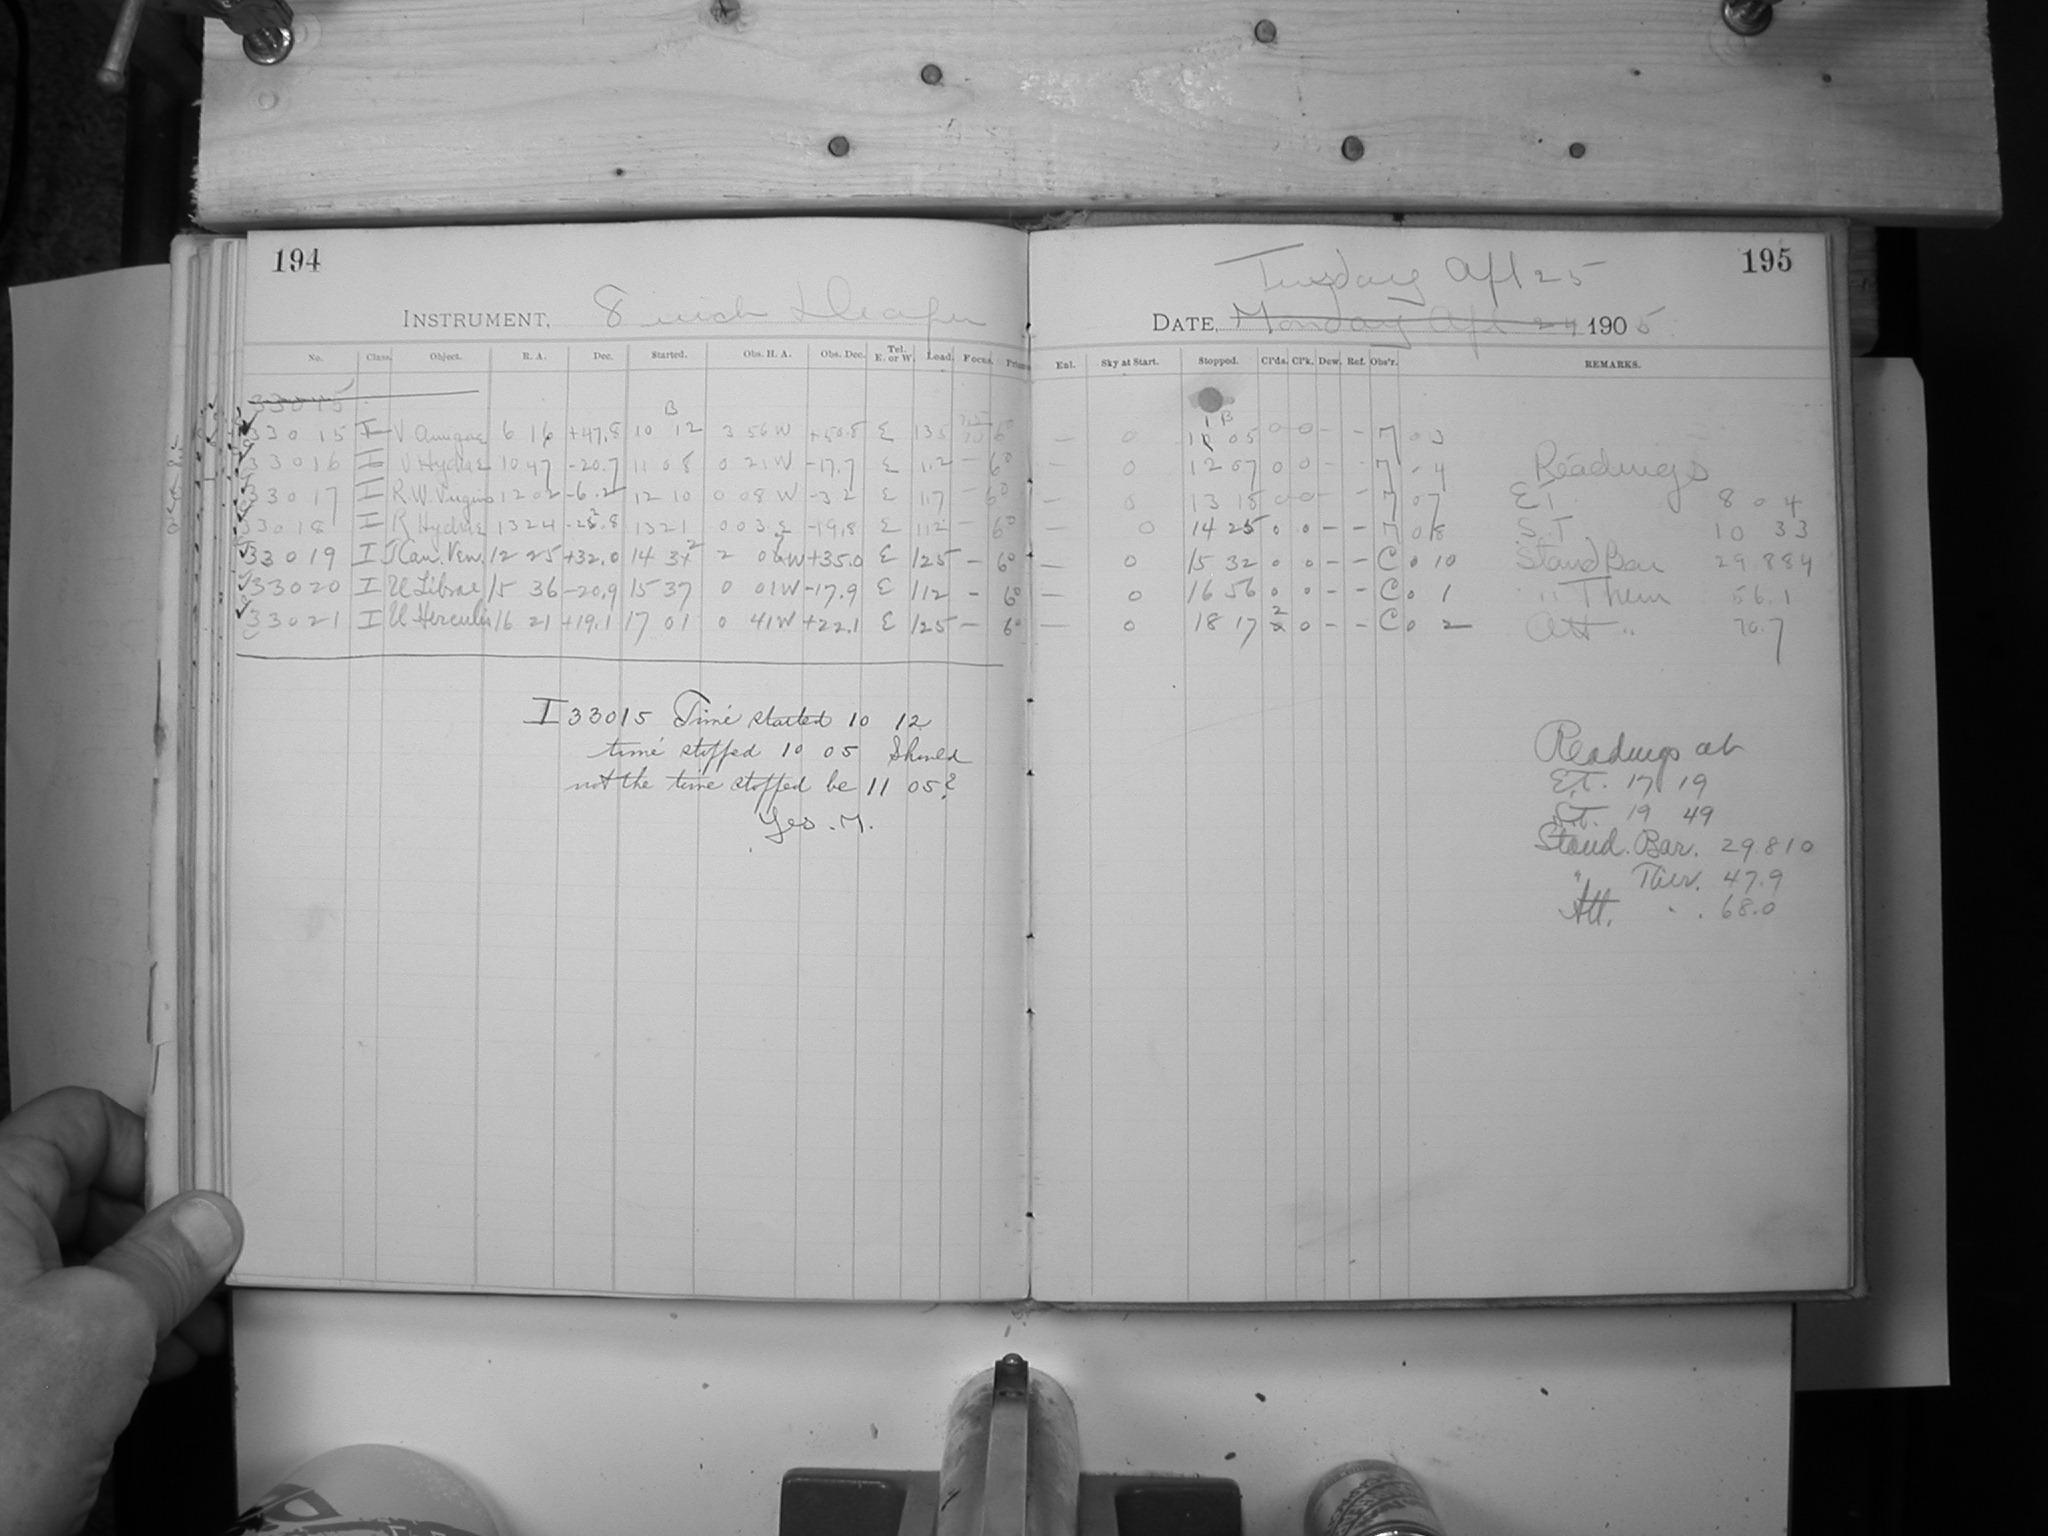 194
INSTRUMENT, 8 inch Draper
No. Class. Object. R. A. Dec. Started. Obs. H. A. Obs. Dec. Tel. E. or W. Lead. Focus.
33015
B
33015 I V Aurigae 6 16 +47.8 10 12 3 56 W +50.8 E 135 6°
33016 I V Hydrae 10 47 -20.7 11 08 0 21 W -17.7 E 112 - 6°
33017 I R.W. Virginis 12 02 -6.2 12 10 0 08 W -3.2 E 117 - 6°
33018 I R Hydrae 13 24 -22.8 13 21 0 03 E -19.8 E 112 - 6°
33019 I T Can. Ven. 12 25 +32.0 14 32 2 07 W +35.0 E 125 - 6°
33020 I U Librae 15 36 -20.9 15 37 0 01 W -17.9 E 112 - 6°
33021 I U Herculis 16 21 +19.1 17 01 0 41 W +22.1 E 125 - 6°
I 33015 Time started 10 12
time stopped 10 05 Should
not the time stopped be 11 05?
Yes. M.
195
Tuesday Apl 25
DATE, Monday Apl 24 1905
Enl. Sky at Start. Stopped. Cl'ds. Cl'k. Dew. Ref. Obs'r. REMARKS.
1 B
— 0 11 05 0 0 - - M 0 3
— 0 12 07 0 0 - - M - 4
— 0 13 18 0 0 - - M 0 7
— 0 14 25 0 0 - - M 0 8
— 0 15 32 0 0 - - C 0 10
— 0 16 56 0 0 - - C 0 1
— 0 18 17 2 0 - - C 0 2
Readings
E T. 8 04
S. T 10 33
Stand Bar 29.884
" Therm 56.1
Att " 70.7
Readings at
E.T. 17 19
S.T. 19 49
Stand. Bar. 29.810
" Ther. 47.9
Att. " 68.0